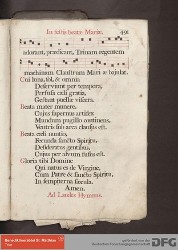 In festis beatæ Mariæ. 491
adorant, prædicant, Trinam regentem
machinam. Claustrum Mari æ bajulat.
Cui luna, sol, & omnia
Deserviunt per tempora,
Perfusa cœli gratia,
Gestant puellæ viscera.
Beata mater munere,
Cujus supernus artifex
Mundum pugillo continens,
Ventris sub arca clausus est.
Beata cœli nuntio,
Fœcunda sancto Spiritu,
Desideratus gentibus,
Cujus per alvum fusus est.
Gloria tibi Domine
Qui natus es de Virgine,
Cum Patre & sancto Spiritu,
In sempiterna sæcula.
Amen.
Ad Laudes Hymnus.
DFG